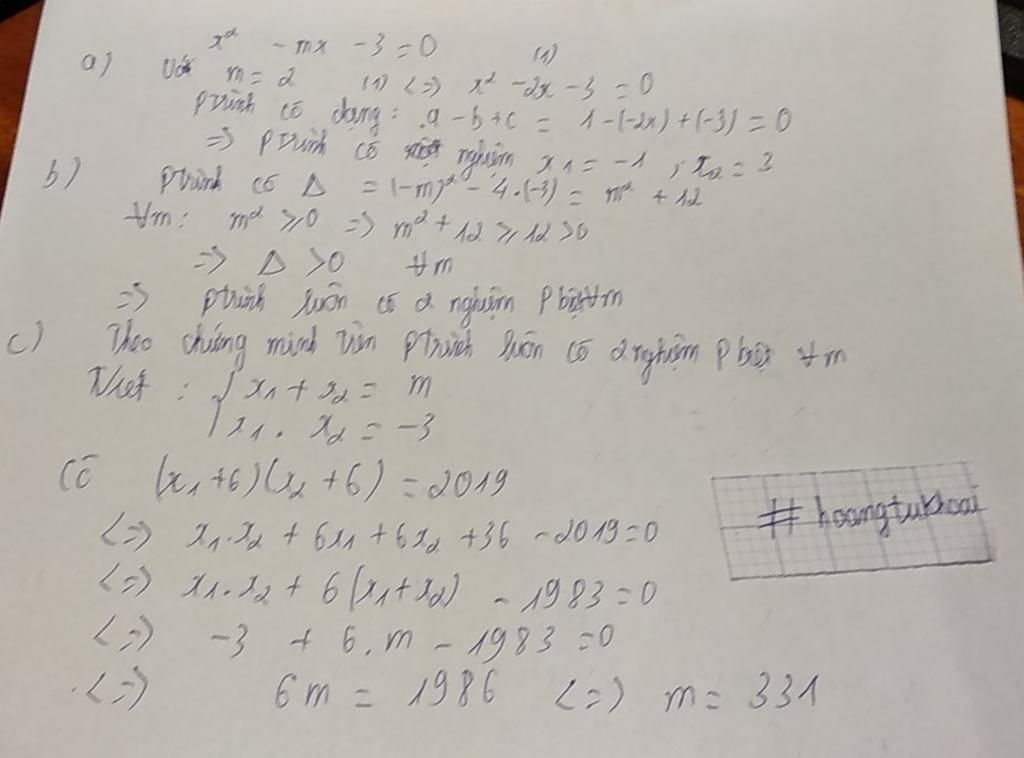 x² - mx - 3 = 0 (1)
a) Với m = 2 (1) <=> x² - 2x - 3 = 0
ptrình có dạng: a - b + c = 1 - (-2x) + (-3) = 0
=> ptrình có nghiệm x1 = -1 ; x2 = 3
b) ptrình có Δ = (-m)² - 4.(-3) = m² + 12
∀m: m² ≥ 0 => m² + 12 ≥ 12 > 0
=> Δ > 0 ∀m
=> ptrình luôn có 2 nghiệm pbiệt ∀m
c) Theo chứng minh trên ptrình luôn có 2 nghiệm pbiệt ∀m
Viet : { x1 + x2 = m
x1 . x2 = -3
Có (x1 + 6)(x2 + 6) = 2019
<=> x1.x2 + 6x1 + 6x2 + 36 - 2019 = 0
# hoangtukhoai
<=> x1.x2 + 6(x1 + x2) - 1983 = 0
<=> -3 + 6.m - 1983 = 0
<=> 6m = 1986 <=> m = 331